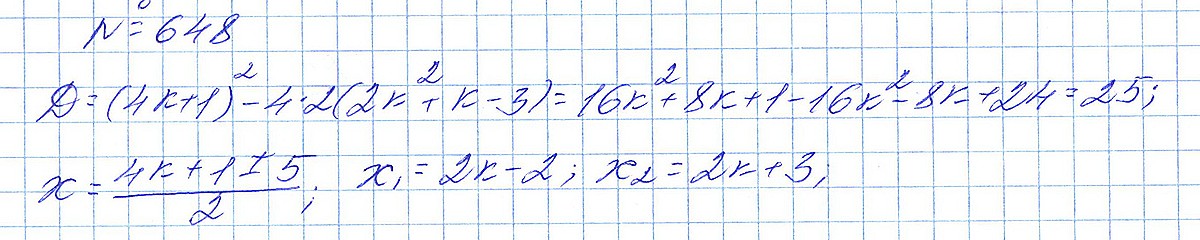 № 648
D = (4k+1)² - 4·2(2k² + k - 3) = 16k² + 8k + 1 - 16k² - 8k + 24 = 25;
x = (4k + 1 ± 5)/2; x₁ = 2k - 2; x₂ = 2k + 3;